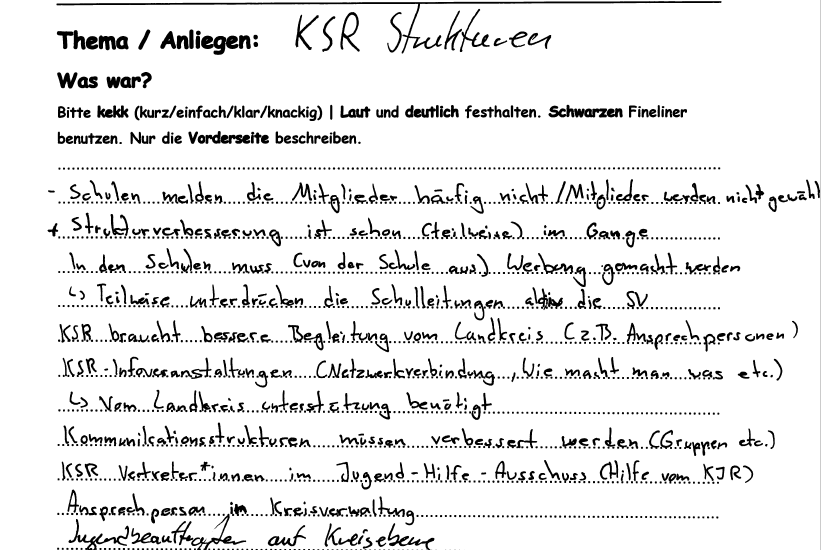 Thema / Anliegen: KSR Strukturen
Was war?
Bitte kekk (kurz/einfach/klar/knackig) | Laut und deutlich festhalten. Schwarzen Fineliner
benutzen. Nur die Vorderseite beschreiben.
- Schulen melden die Mitglieder häufig nicht / Mitglieder werden nicht gewähl
+ Strukturverbesserung ist schon (teilweise) im Gange
In den Schulen muss (von der Schule aus) Werbung gemacht werden
↳ Teilweise unterdrücken die Schulleitungen aktiv die SV
KSR braucht bessere Begleitung vom Landkreis (z.B. Ansprechpersonen)
KSR-Infoveranstaltungen (Netzwerkverbindung, Wie macht man was etc.)
↳ Vom Landkreis unterstützung benötigt
Kommunikationsstrukturen müssen verbessert werden (Gruppen etc.)
KSR Vertreter*innen im Jugend-Hilfe-Ausschuss (Hilfe vom KJR)
Ansprechperson in Kreisverwaltung
Jugendbeauftragten auf Kreisebene